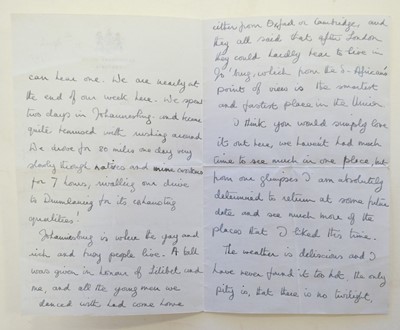 can hear one. We are nearly at
the end of our week here. We spent
two days in Johannesburg and became
quite renowned with rushing around
We drove for 80 miles one day very
slowly through natives and
for 7 hours, rivalling our drive
to Dunfermline for its exhausting
qualities!
Johannesburg is where the gay and
rich and busy people live. A ball
was given in honour of Lilibet and
me, and all the young men we
danced with had come home
either from Oxford or Cambridge, and
they all said that after London
they could hardly bear to live in
Jo'burg, which from the S-African's
point of view is the smartest
and fastest place in the Union.
I think you would simply love
it out here, we haven't had much
time to see much in one place, but
from our glimpses I am absolutely
determined to return at some future
date and see much more of the
places that I liked this time.
The weather is delicious and I
have never found it too hot, the only
pity is, that there is no twilight.